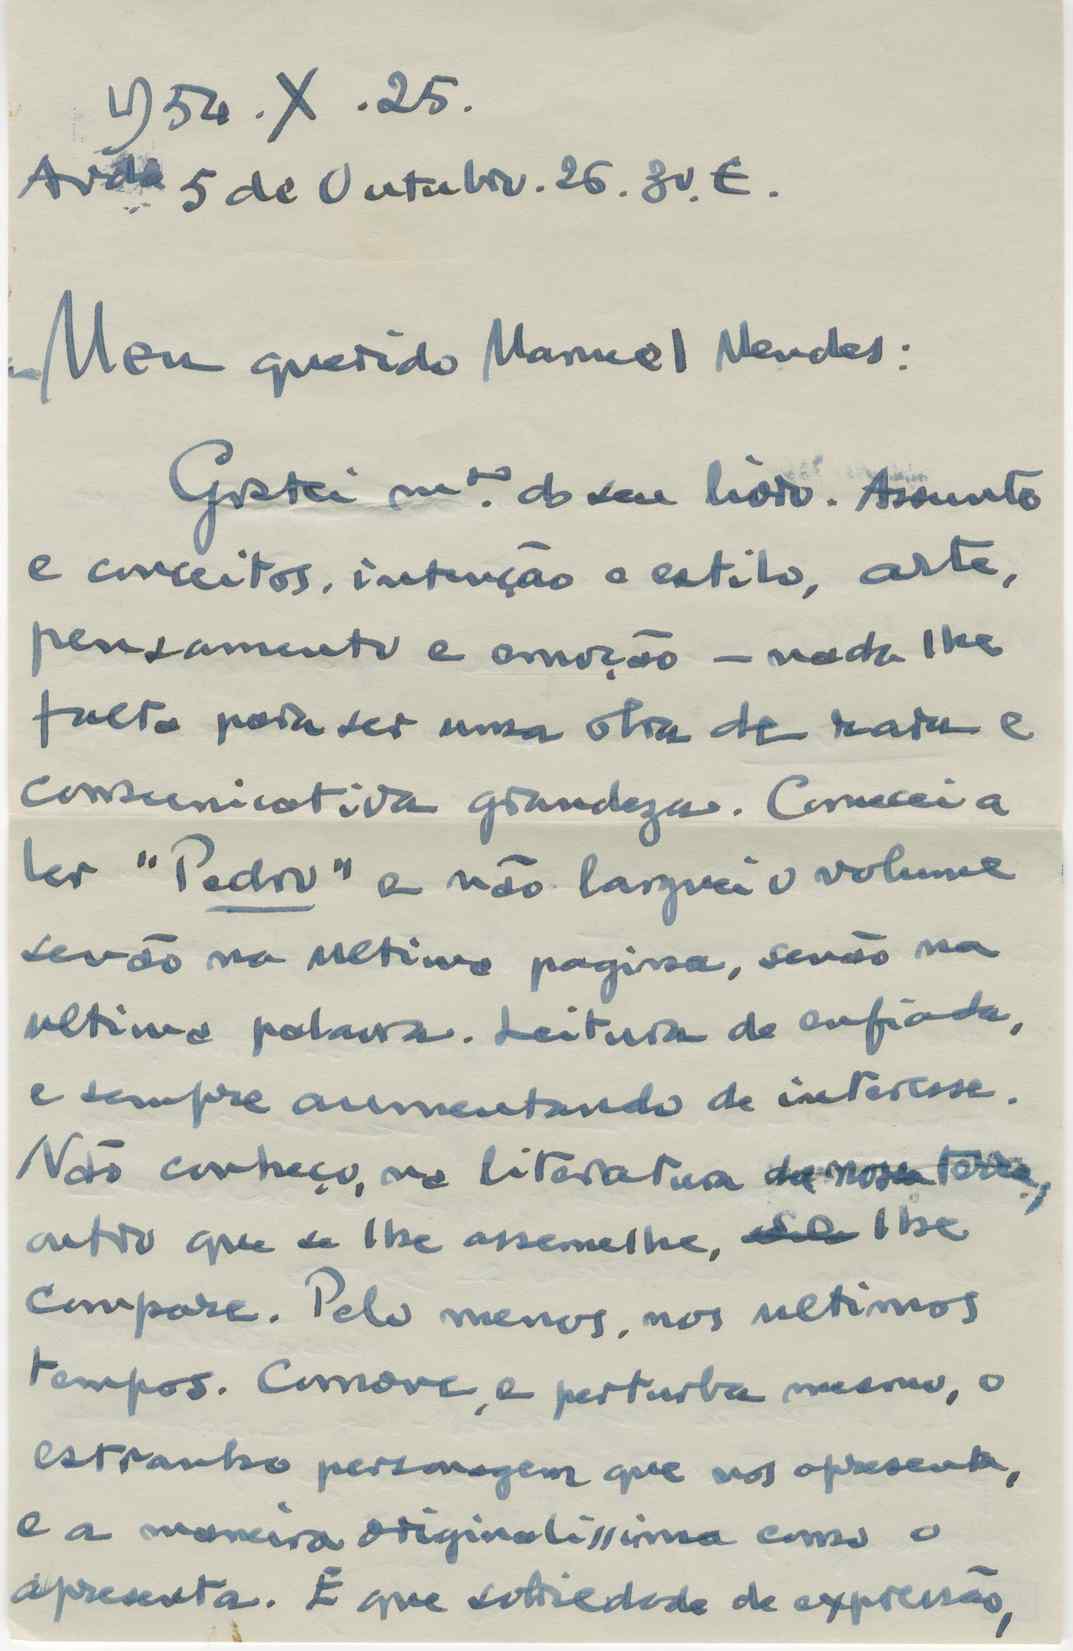 1954.X.25.
Avda 5 de Outubro. 26. 3º. E.
Meu querido Manuel Mendes:
Gostei mto. do seu livro. Assunto
e conceitos, intenção e estilo, arte,
pensamento e emoção — nada lhe
falta para ser uma obra de rara e
comunicativa grandeza. Comecei a
ler "Pedro" e não larguei o volume
senão na ultima pagina, senão na
ultima palavra. Leitura de enfiada,
e sempre aumentando de interesse.
Não conheço, na literatura da nossa terra,
outro que se lhe assemelhe, lhe
compare. Pelo menos, nos ultimos
tempos. Comove, e perturba mesmo, o
estranho personagem que nos apresenta,
e a maneira originalissima como o
apresenta. E que sobriedade de expressão,